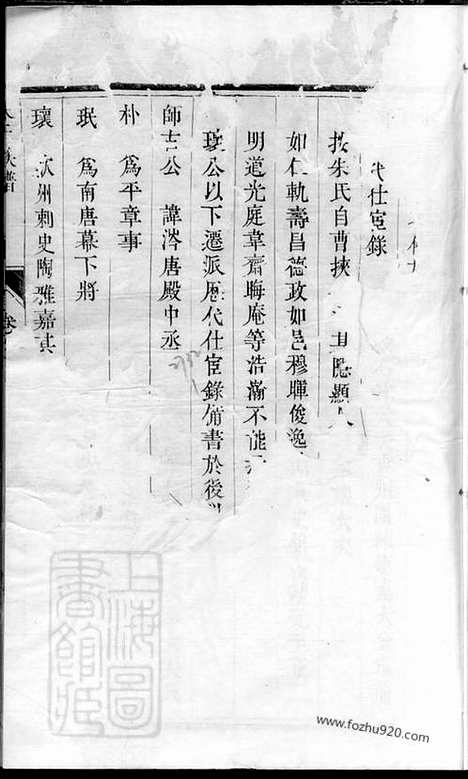 代仕宦錄
按朱氏自曹挾
如仁軌壽昌德政如邑穆暉俊逸
明道光庭韋齋晦庵等浩瀚不能
瓌公以下遷派歷代仕宦錄備書於後
師古公 諱涔唐殿中丞
朴 為平章事
珉 為南唐幕下將
瓌 歙州刺史陶雅嘉其
上海圖書館藏
www.fozhu920.com